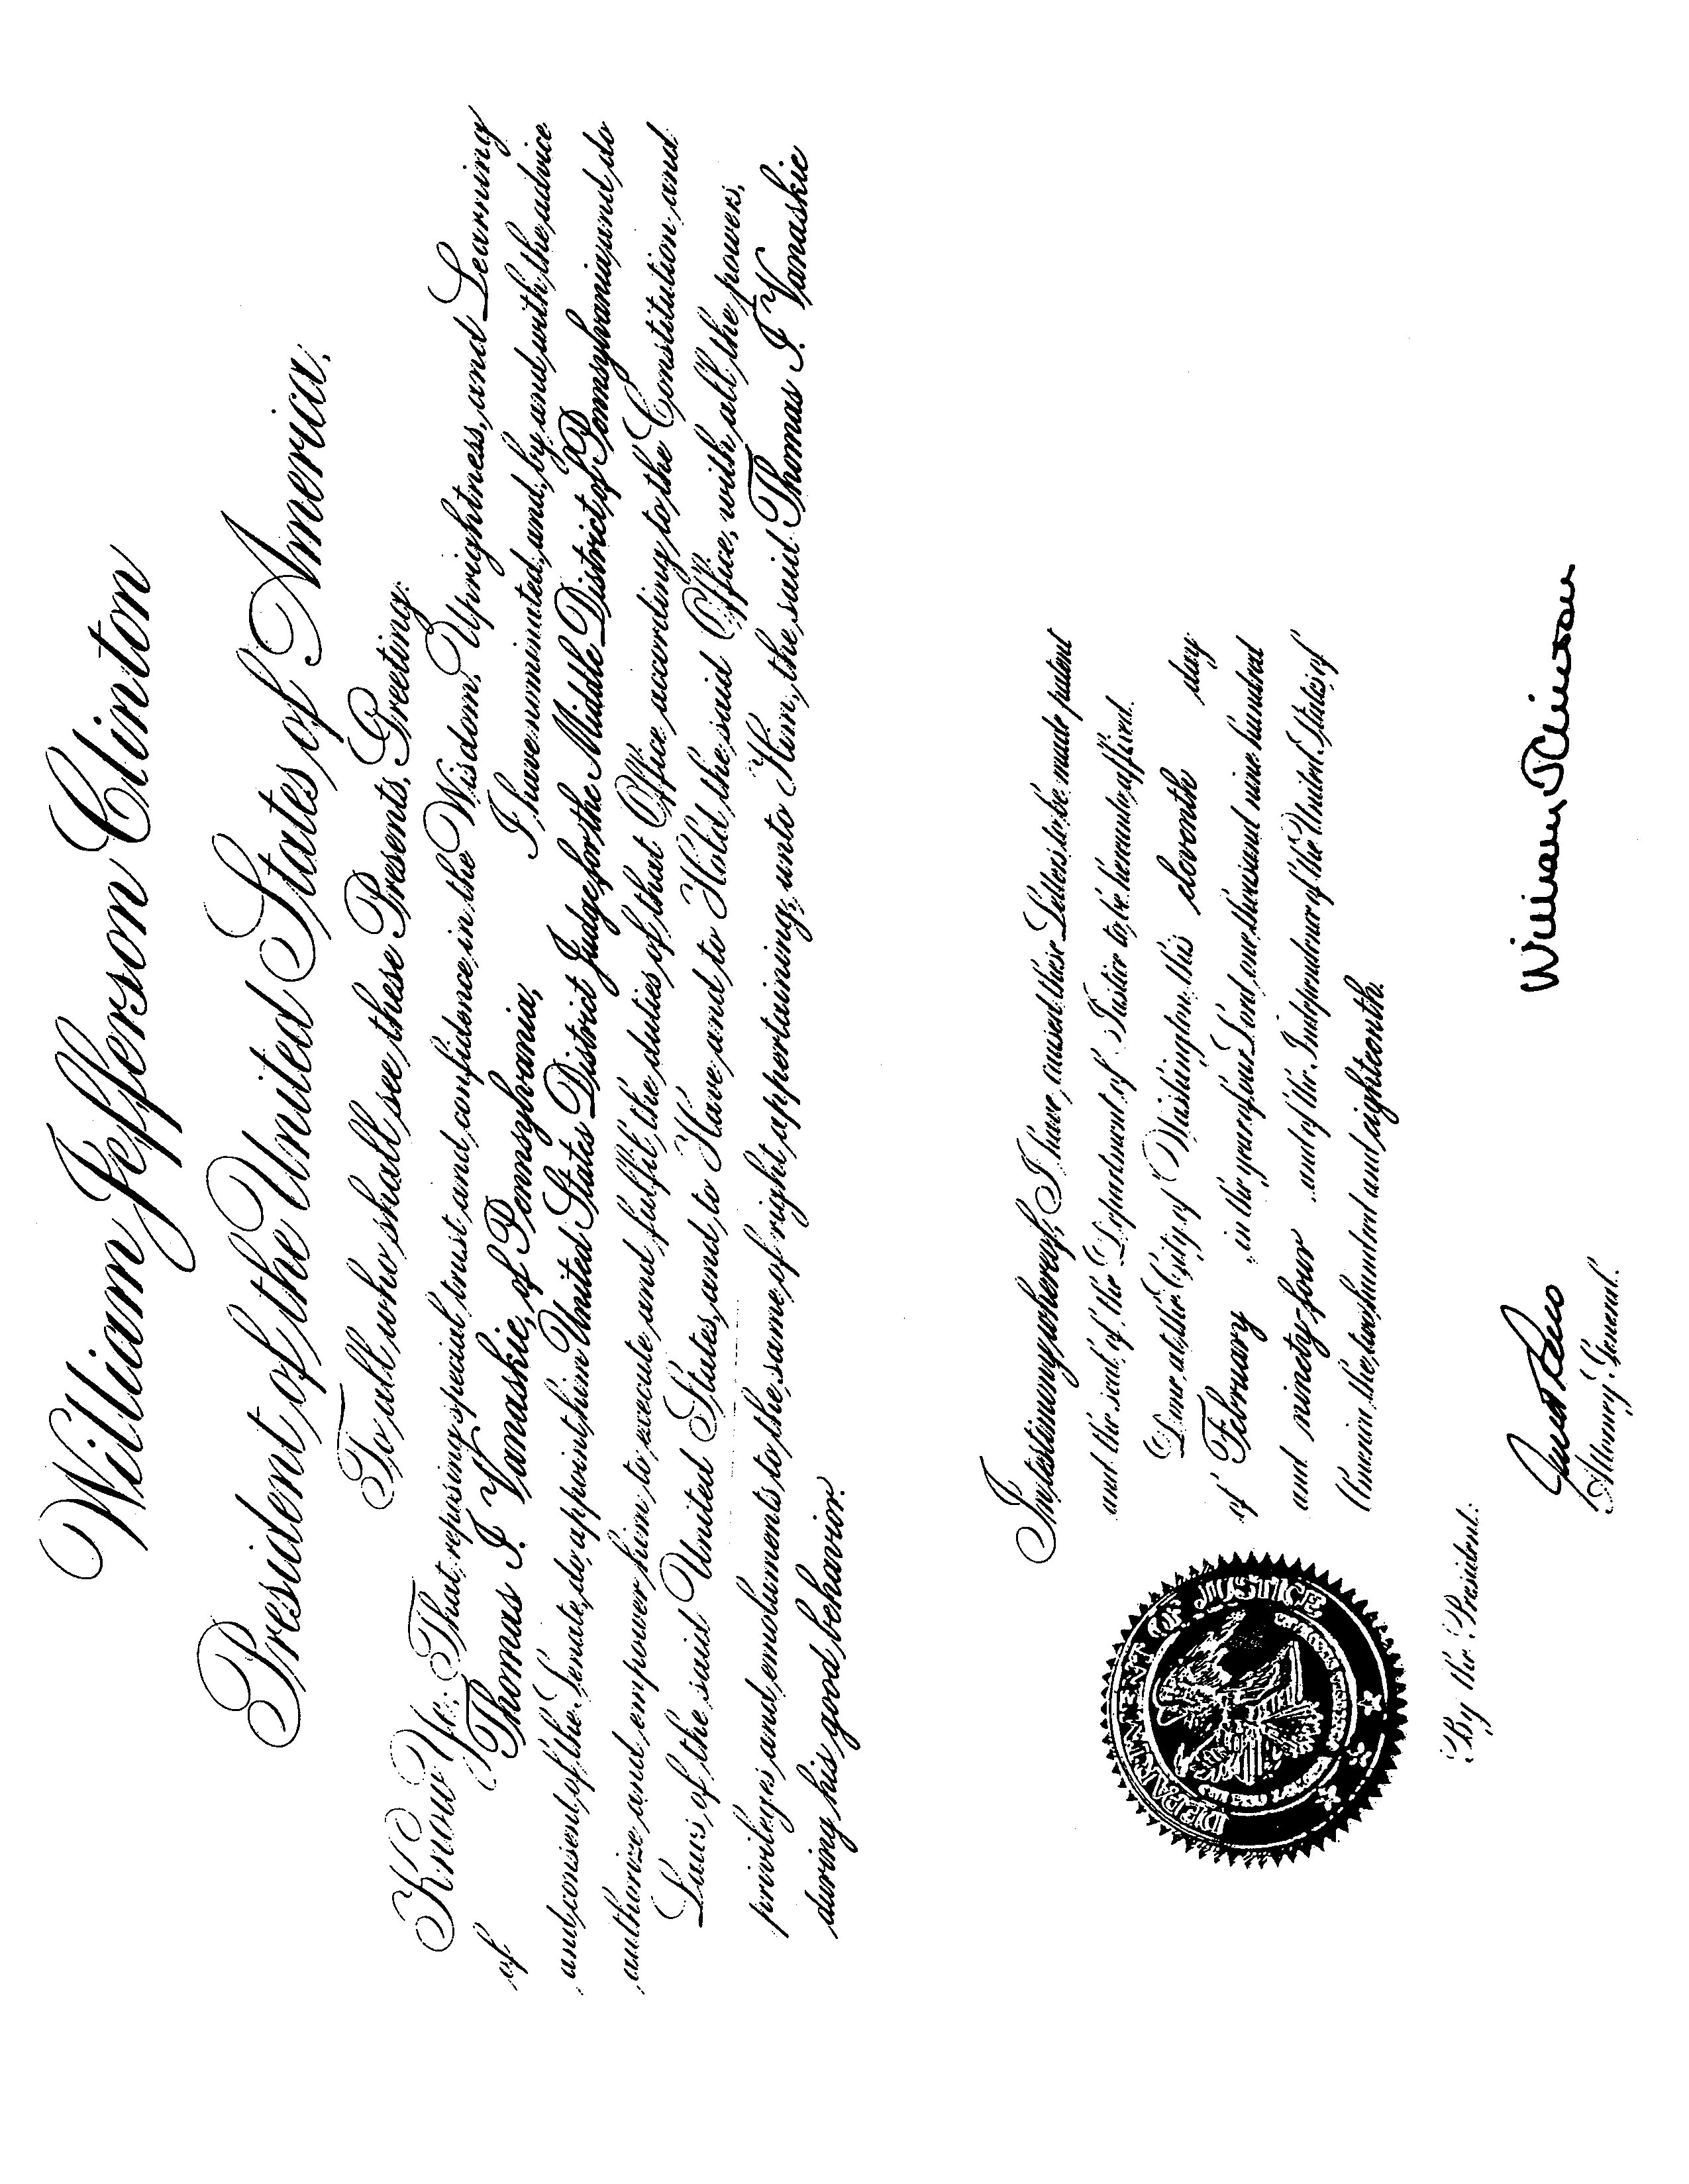 William Jefferson Clinton
President of the United States of America,
To all who shall see these Presents, Greeting:
Know Ye: That, reposing special trust and confidence in the Wisdom, Uprightness, and Learning
of Thomas I. Vanaskie, of Pennsylvania, I have nominated, and, by and with the advice
and consent of the Senate, do appoint him United States District Judge for the Middle District of Pennsylvania, and do
authorize and empower him to execute and fulfil the duties of that Office according to the Constitution and
Laws of the said United States, and to Have and to Hold the said Office, with all the powers,
privileges and emoluments to the same of right appertaining, unto Him, the said Thomas I. Vanaskie
during his good behavior.
In testimony whereof, I have caused these Letters to be made patent
and the seal of the Department of Justice to be hereunto affixed.
Done at the City of Washington this eleventh day
of February in the year of our Lord one thousand nine hundred
and ninety-four and of the Independence of the United States of
America the two hundred and eighteenth.
DEPARTMENT OF JUSTICE
William J Clinton
By the President:
Janet Reno
Attorney General.